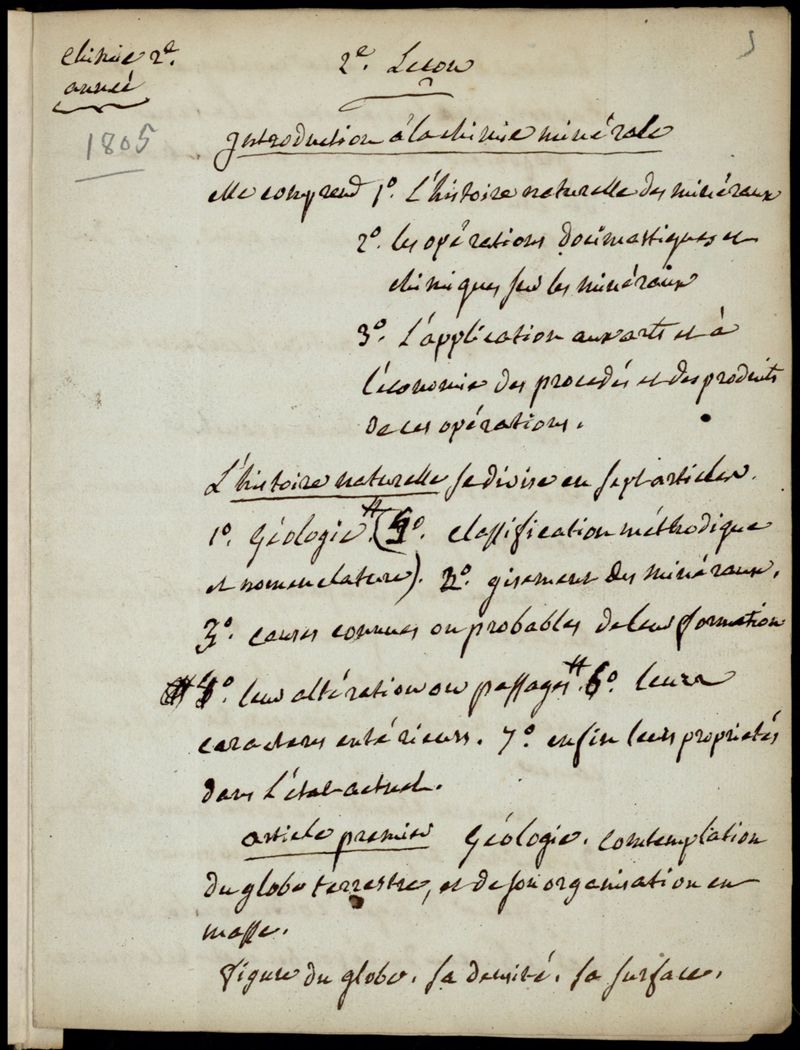 Chimie 2e.
année
1805
2e. Lecon
Introduction à la chimie minérale
elle comprend 1o. L'histoire naturelle des minéraux
2o. les opérations docimastiques et
chimiques sur les minéraux
3o. L'application aux arts et à
l'économie des procedés et des produits
de ces opérations.
L'histoire naturelle se divise en sept articles.
1o. Géologie. # (5o. classification méthodique
et nomenclature). 2o. gisement des minéraux.
3o. causes connues ou probables de leur formation
# 4o. leur altération ou passages. # 6o. leurs
caracteres extérieurs. 7o. enfin leurs propriétés
dans l'état actuel.
article premier Géologie. Contemplation
du globe terrestre, et de son organisation en
masse.
figure du globe. sa densité. sa surface.